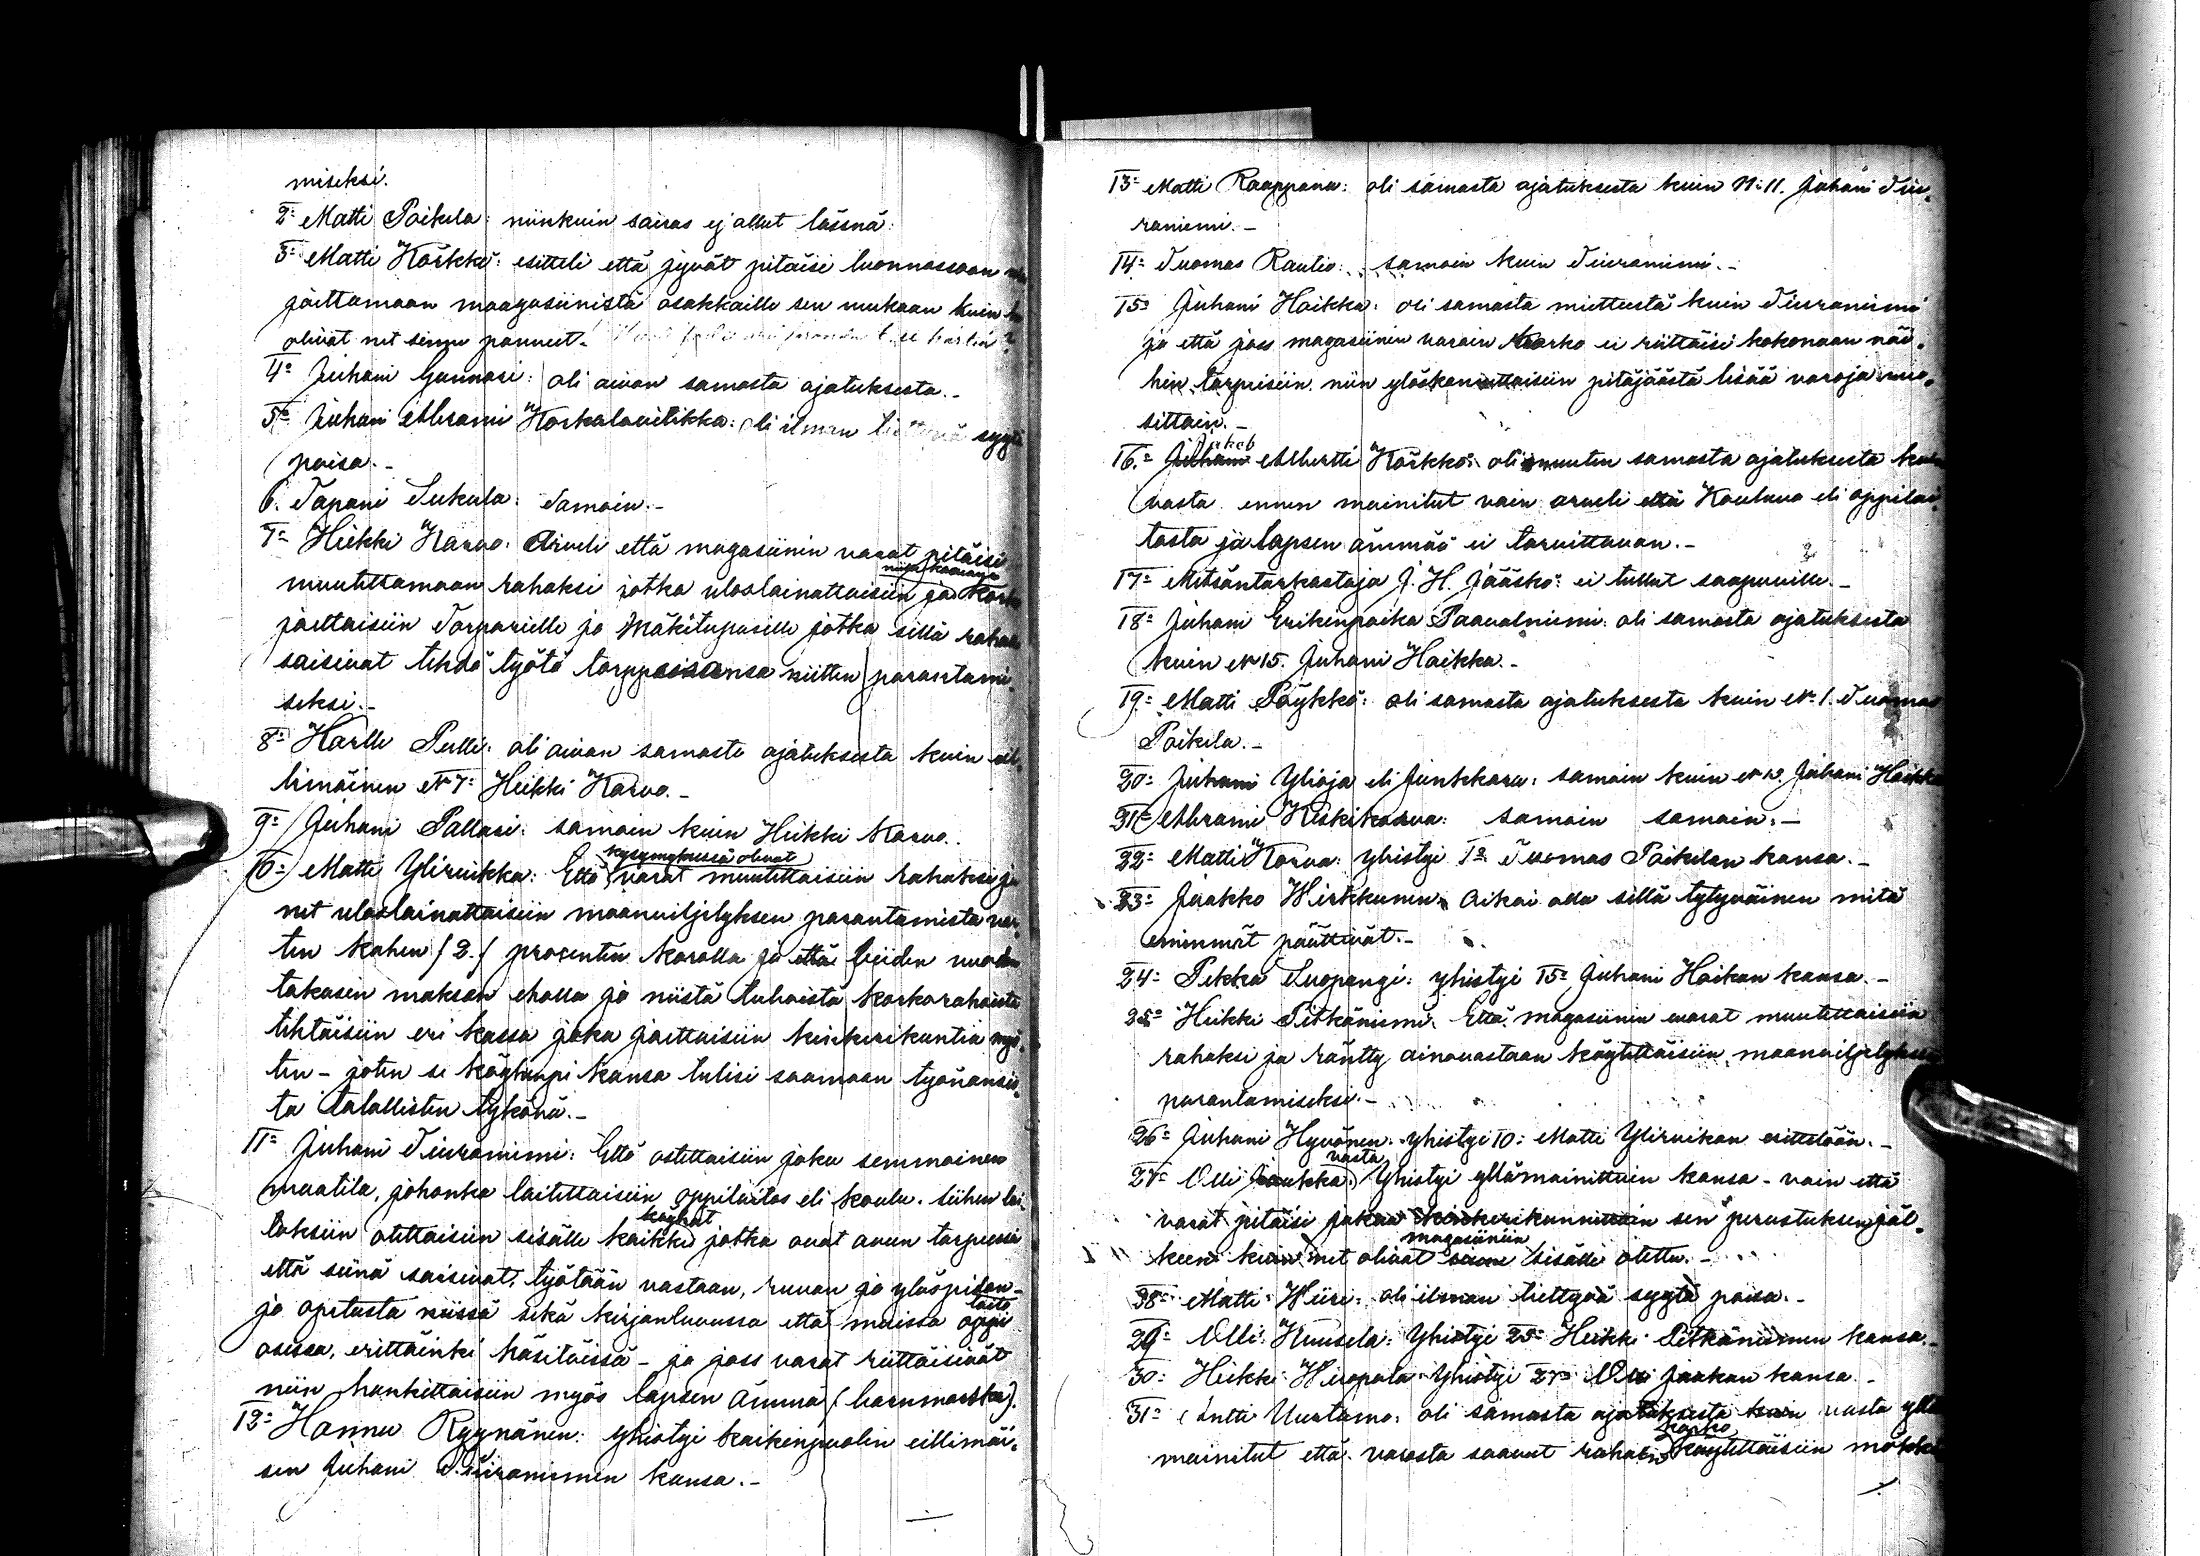 miseksi.
2= Matti Poikela: niinkuin sairas ej ollut lässnä.
3= Matti Körkkö: esitteli että jyvät pitäisi luonnossaan
jaettamaan maagasiinistä osakkaille sen mukaan kuin he
olivat net sinne pannut.
4= Juhani Gunnari: oli aivan samasta ajatuksesta.-
5= Juhani Abrami Korkalovitikka: oli ilman tiettyvä syytä
poisa.-
6. Tapani Sukula: Samoin.-
7= Heikki Karvo: Arveli että magasiinin varat pitäisi
muutettamaan rahaksi jotka uloslainattaisiin ja niijen kasvava korko
jaettaisiin Torpparielle ja Mäkitupasille jotka sillä rahalla
saisivat tehdä työtä torppaisansa niitten parantami-
seksi.-
8= Kalle Pulli: oli aivan samasta ajatuksesta kuin eil-
limäinen N 7= Heikki Karvo.-
9= Juhani Pallari: samoin kuin Heikki Karvo..
10= Matti Ylirvikka: Että kysymyksessä olevat varat muutettaisiin rahaksi ja
net uloslainattaisiin maanviljelyksen parantamista var-
ten kahen (2.) prosentin korolla ja että viiden vuoden
takasen makson eholla ja niistä tuhoista korkorahoista
tehtäisiin eri kassa joka jaettaisiin kinkerikuntia myö-
ten - joten se köyhinpi kansa tulisi saamaan työnansio-
ta talallisten tykönä.-
11= Juhani Tiuraniemi: Että ostettaisiin joku semmoinen
maatila, johonka laitettaisiin oppilaitos eli koulu. siihen lai-
toksiin otettaisiin sisälle kaikki köyhät jotka ovat avun tarpeessa
että siinä saisivat, työtään vastaan, ruvan ja ylöspidon-
ja opetusta niissä sekä kirjanluvussa että muissa oppi
osissa, erittäinki käsitöissä - ja joss varat riittäisivät
niin hankittaisiin myös lapsen ämmä (barnmorska).
12= Hannu Ryynänen: yhistyi kaikenpuolin eillimäi-
sen Juhani Tiuraniemen kansa.-
13= Matti Raappana: oli samasta ajatuksesta kuin N: 11. Juhani Tiu-
raniemi.-
14= Tuomas Rautio: samoin kuin Tiuraniemi.-
15= Juhani Hoikka: oli samasta mietteestä kuin Tiuraniemi
ja että joss magasiinin varain korko ei riittäisi kokonaan näi-
hin tarpeisiin niin ylöskannettaisiin pitäjäästä lisää varoja vuo-
sittain.-
16= Jakob Albertti Körkkö: oli muuten samasta ajatuksesta kuin
vasta ennen mainitut vain arveli että Kouluva eli oppilai-
tosta ja lapsen ämmää ei tarvittavan.-
17= Metsäntarkastaja J. H. Jääskö: ei tullut saapuville.-
18= Juhani Erikinpoika Paavalniemi: oli samasta ajatuksesta
kuin N 15. Juhani Hoikka.-
19= Matti Pöykkö: oli samasta ajatuksesta kuin N: 1. Tuomas
Poikela.-
20= Juhani Ylioja eli Juntkkara: samoin kuin N 15. Juhani Hoikka
21= Abrami Keskikarva: samoin samoin.-
22= Matti Karva: yhistyi 1= Tuomas Poikelan kansa.-
23= Jaakko Wirkkunen: Aikoi olla sillä tytyväinen mitä
eninmät päättivät.-
24= Pekka Suopangi: yhistyi 15= Juhani Hoikan kansa.-
25= Heikki Pitkäniemi: Että magasiinin varat muutettaisiin
rahaksi ja räntty ainovastaan käytettäisiin maanviljelyksen
parantamiseksi.-
26= Juhani Hyvönen: yhistyi 10: Matti Ylirvikan esittelöön.-
27= Olli Jaukka: Yhistyi vasta yllämainittuin kansa - vain että
varat pitäisi jakaa kinkerikunnittain sen perustuksen jäl-
keen kuin net olivat magasiiniin sisälle otettu.-
28= Matti Wiiri: oli ilman tiettyvä syytä poisa.-
29= Olli Kuusela: Yhistyi 25= Heikki Pitkäniemen kansa.-
30= Heikki Hirvpala: Yhistyi 27= Olli Jaakan kansa.-
31= Antti Uustamo: oli samasta ajatuksesta kuin vasta yllä
mainitut että varosta saavut rahain korko käytettäisiin mökki